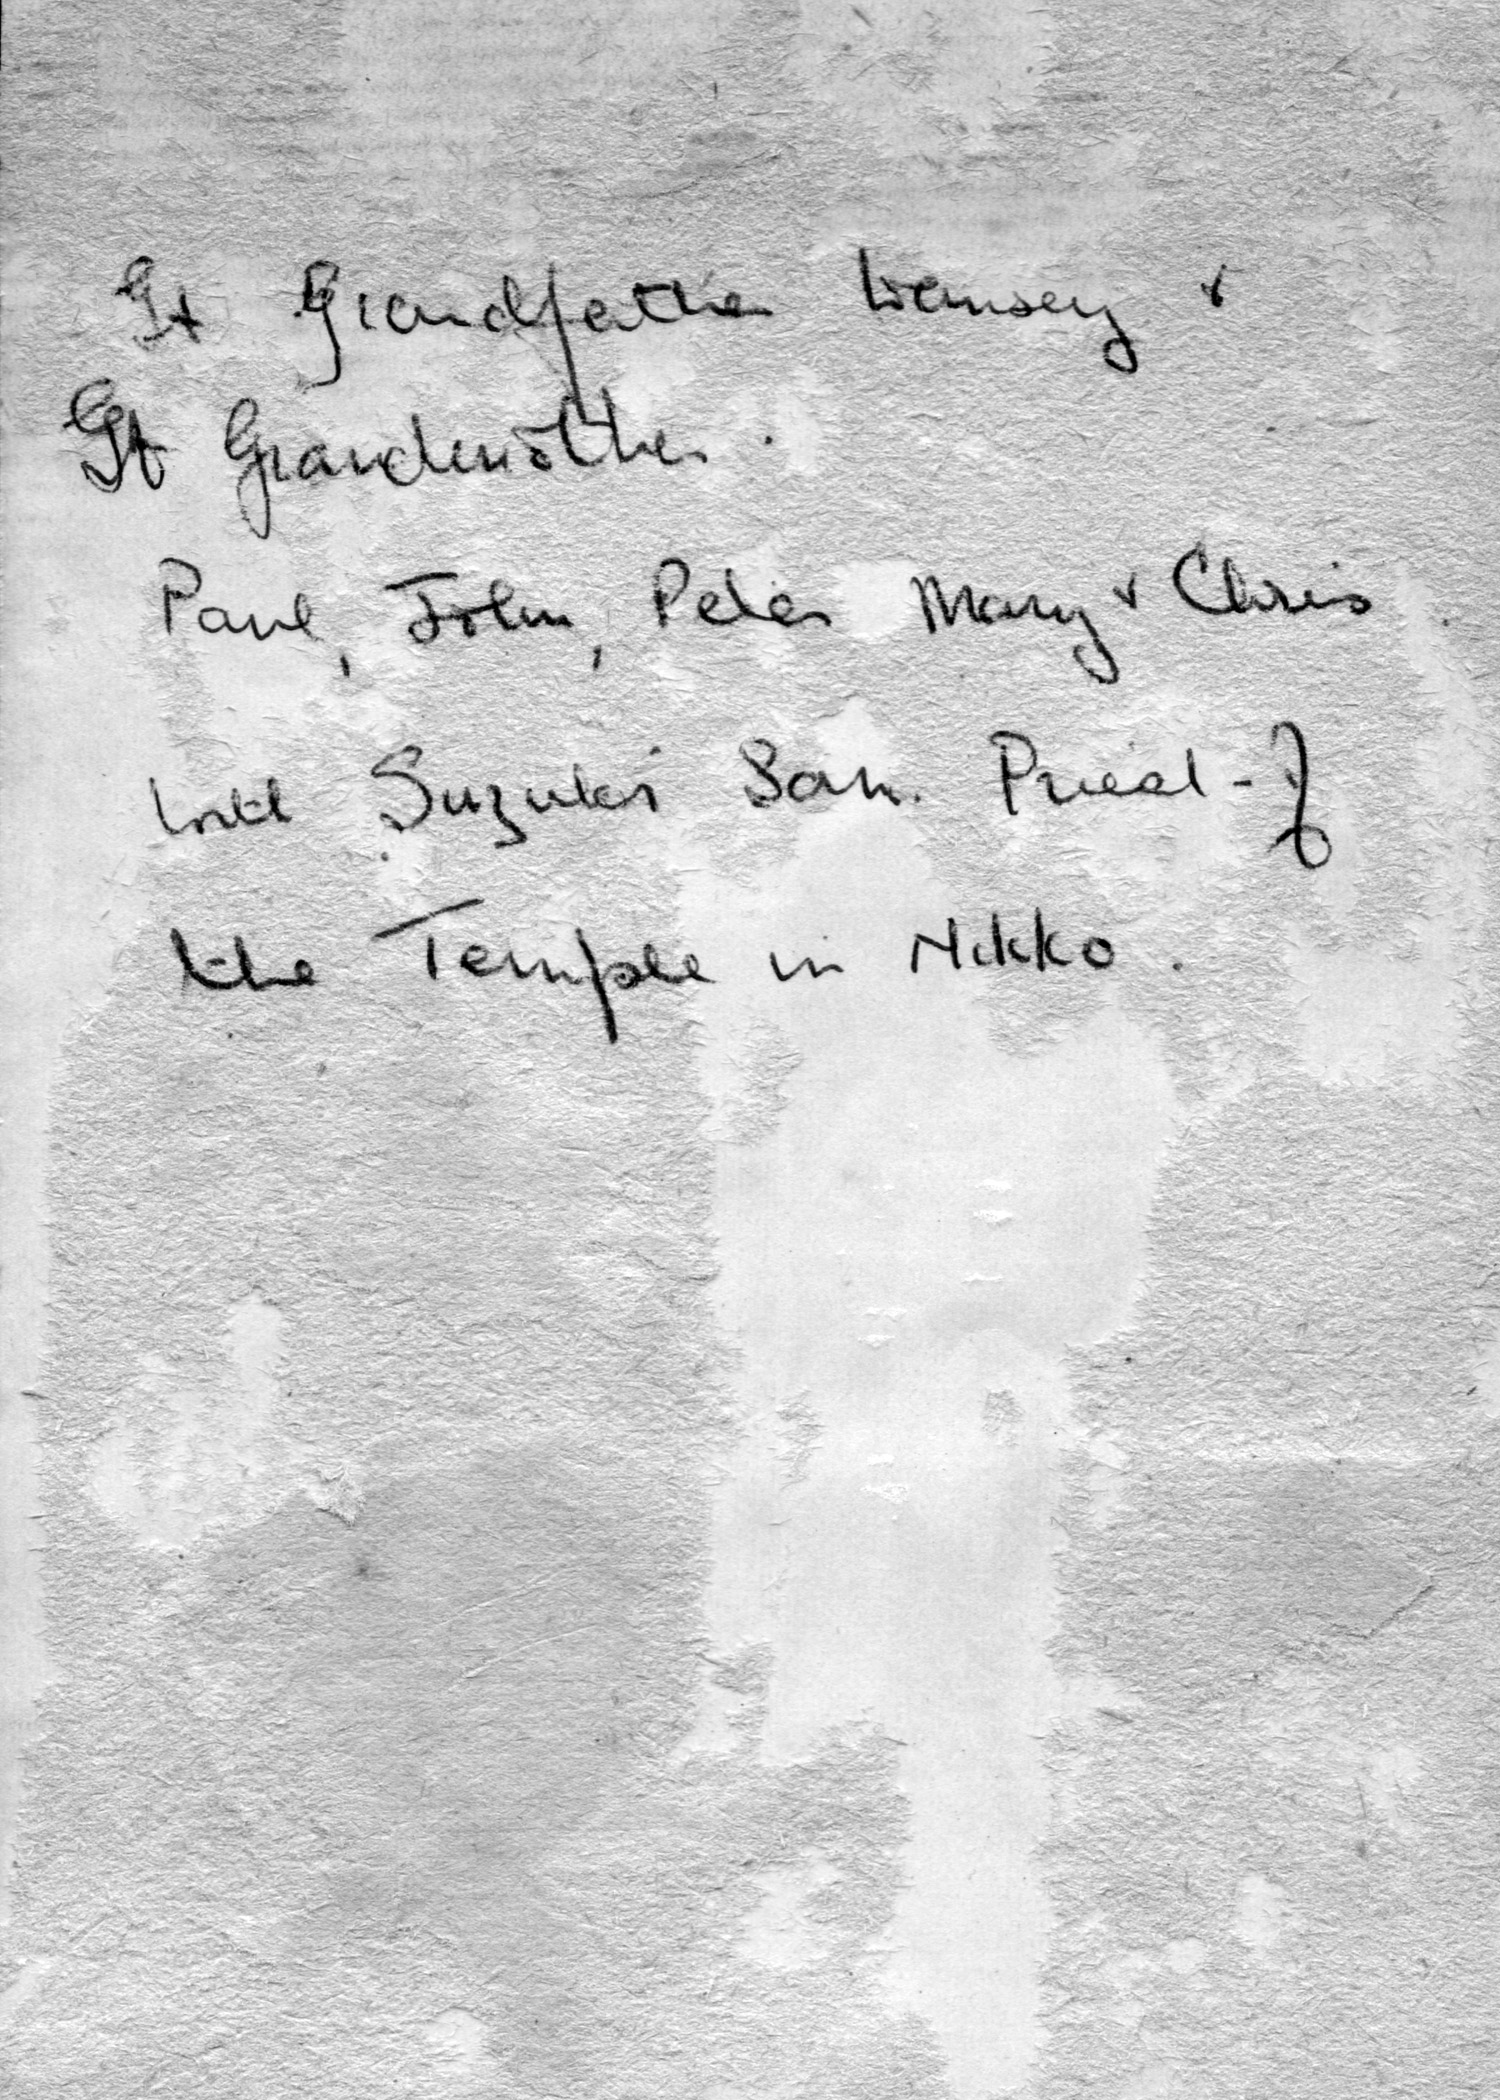 Gt Grandfather Wansey &
Gt Grandmother.
Paul, John, Peter Mary & Chris.
with Suzuki San. Priest - of
the Temple in Nikko.